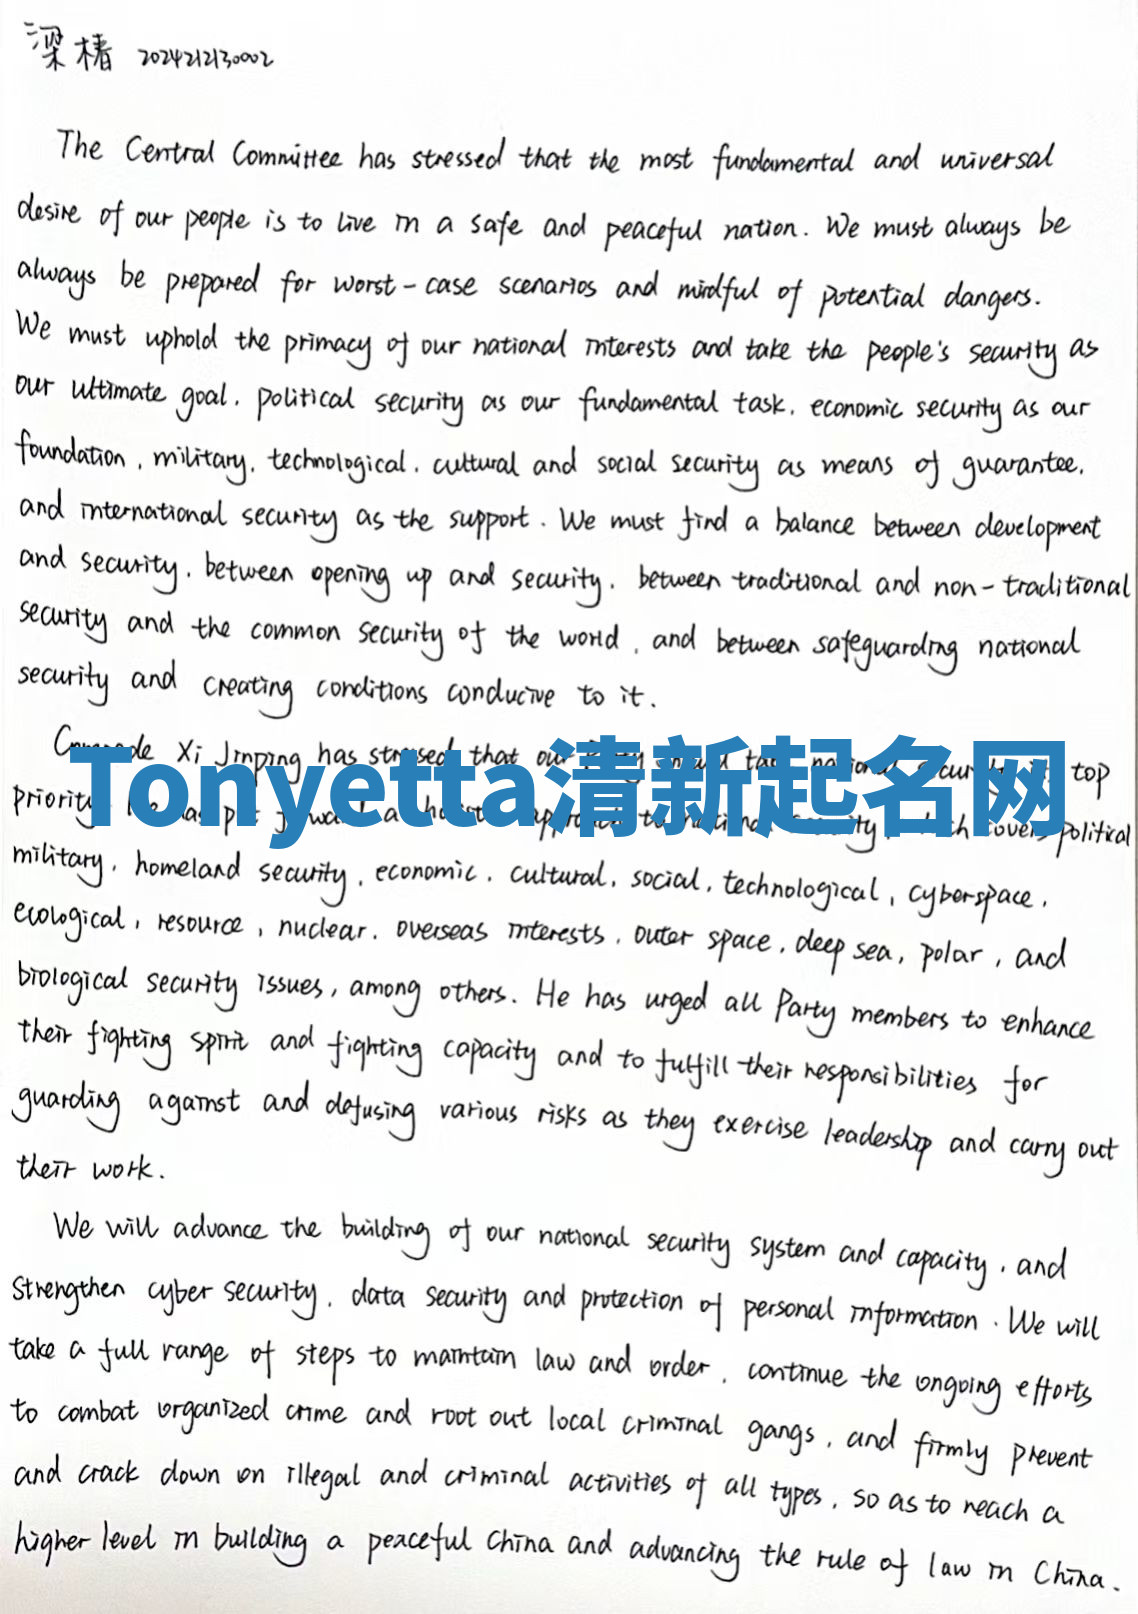 梁椿 2024212130002
The Central Committee has stressed that the most fundamental and universal
desire of our people is to live in a safe and peaceful nation. We must always be
always be prepared for worst-case scenarios and mindful of potential dangers.
We must uphold the primacy of our national interests and take the people's security as
our ultimate goal, political security as our fundamental task, economic security as our
foundation, military, technological, cultural and social security as means of guarantee,
and international security as the support. We must find a balance between development
and security, between opening up and security, between traditional and non-traditional
security and the common security of the world, and between safeguarding national
security and creating conditions conducive to it.
Comrade Xi Jinping has stressed that our top
Tonyetta清新起名网
priority political
military, homeland security, economic, cultural, social, technological, cyberspace,
ecological, resource, nuclear, overseas interests, outer space, deep sea, polar, and
biological security issues, among others. He has urged all Party members to enhance
their fighting spirit and fighting capacity and to fulfill their responsibilities for
guarding against and defusing various risks as they exercise leadership and carry out
their work.
We will advance the building of our national security system and capacity, and
strengthen cyber security, data security and protection of personal information. We will
take a full range of steps to maintain law and order, continue the ongoing efforts
to combat organized crime and root out local criminal gangs, and firmly prevent
and crack down on illegal and criminal activities of all types, so as to reach a
higher level in building a peaceful China and advancing the rule of law in China.